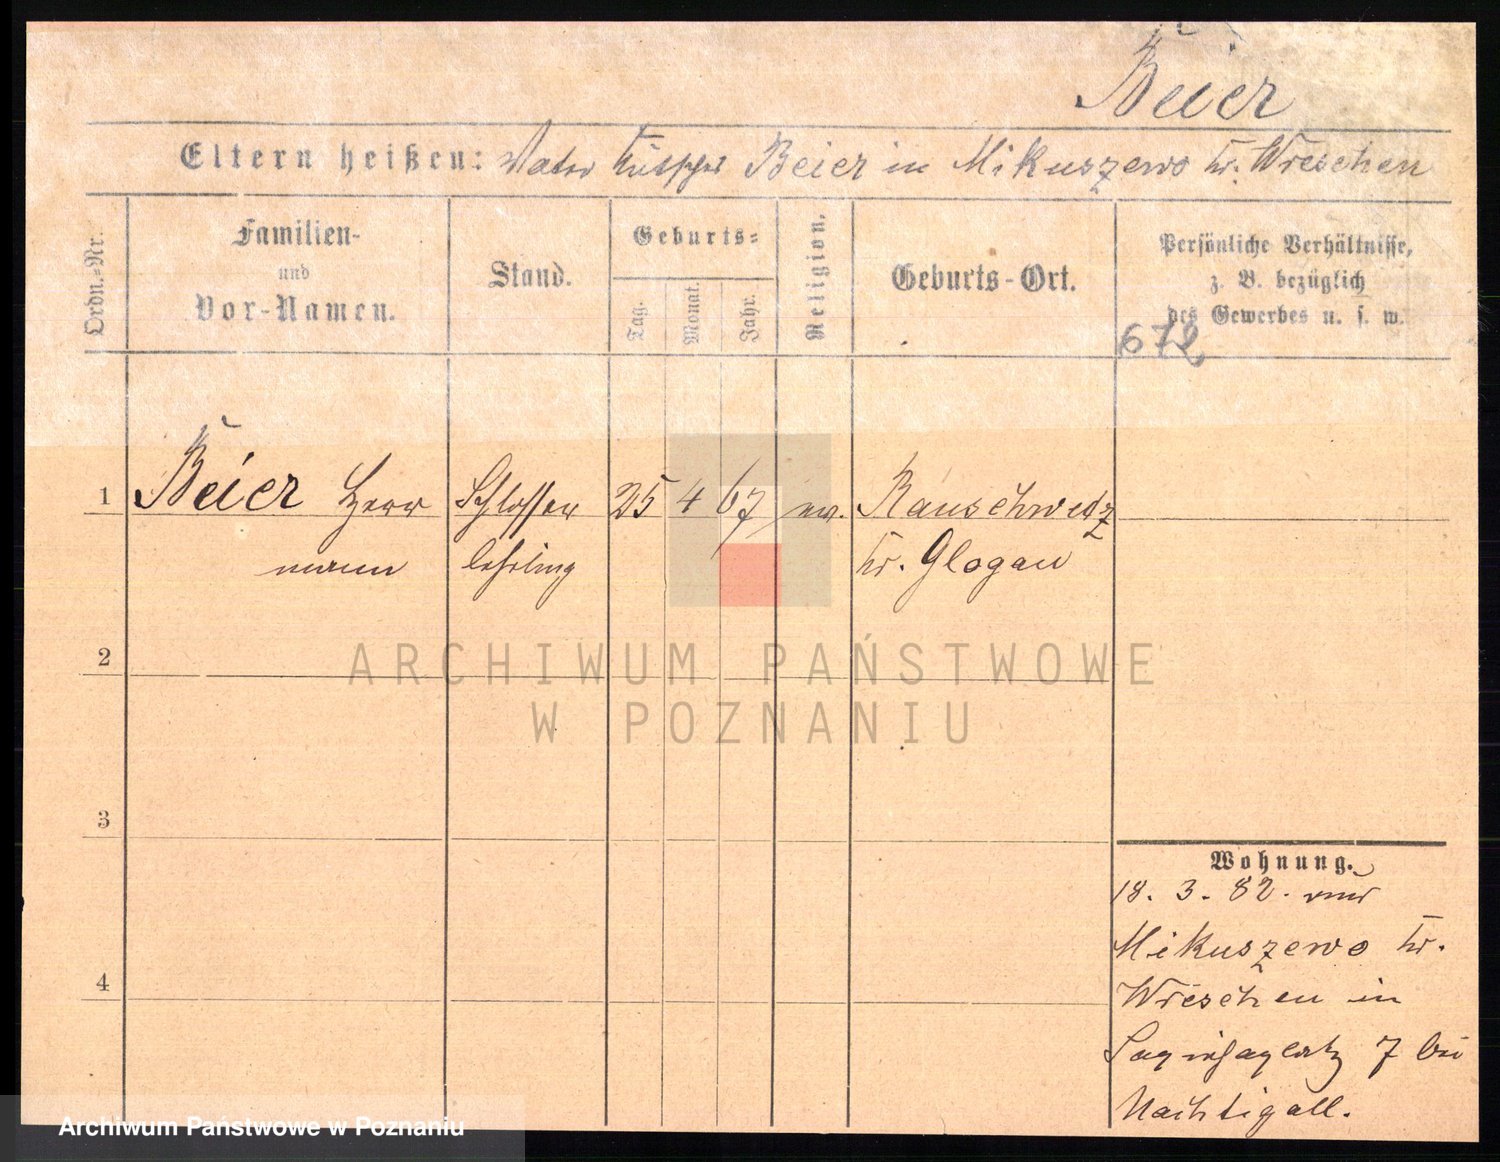 Beier
Eltern heißen: Vater Kutscher Beier in Mikuszewo Kr. Wreschen
Ordn.-Nr.
Familien-
und
Vor-Namen.
Stand.
Geburts-
Tag.
Monat.
Jahr.
Religion.
Geburts-Ort.
Persönliche Verhältnisse,
z. B. bezüglich
des Gewerbes u. s. w.
672
1 Beier Herr Schlosser 25 4 67 ev. Rauschwitz
mann lehrling Kr. Glogau
2
ARCHIWUM PAŃSTWOWE
W POZNANIU
3
Wohnung.
18. 3. 82. von
Mikuszewo Kr.
4
Wreschen in
Sapiehaplatz 7 bei
Nachtigall.
Archiwum Państwowe w Poznaniu